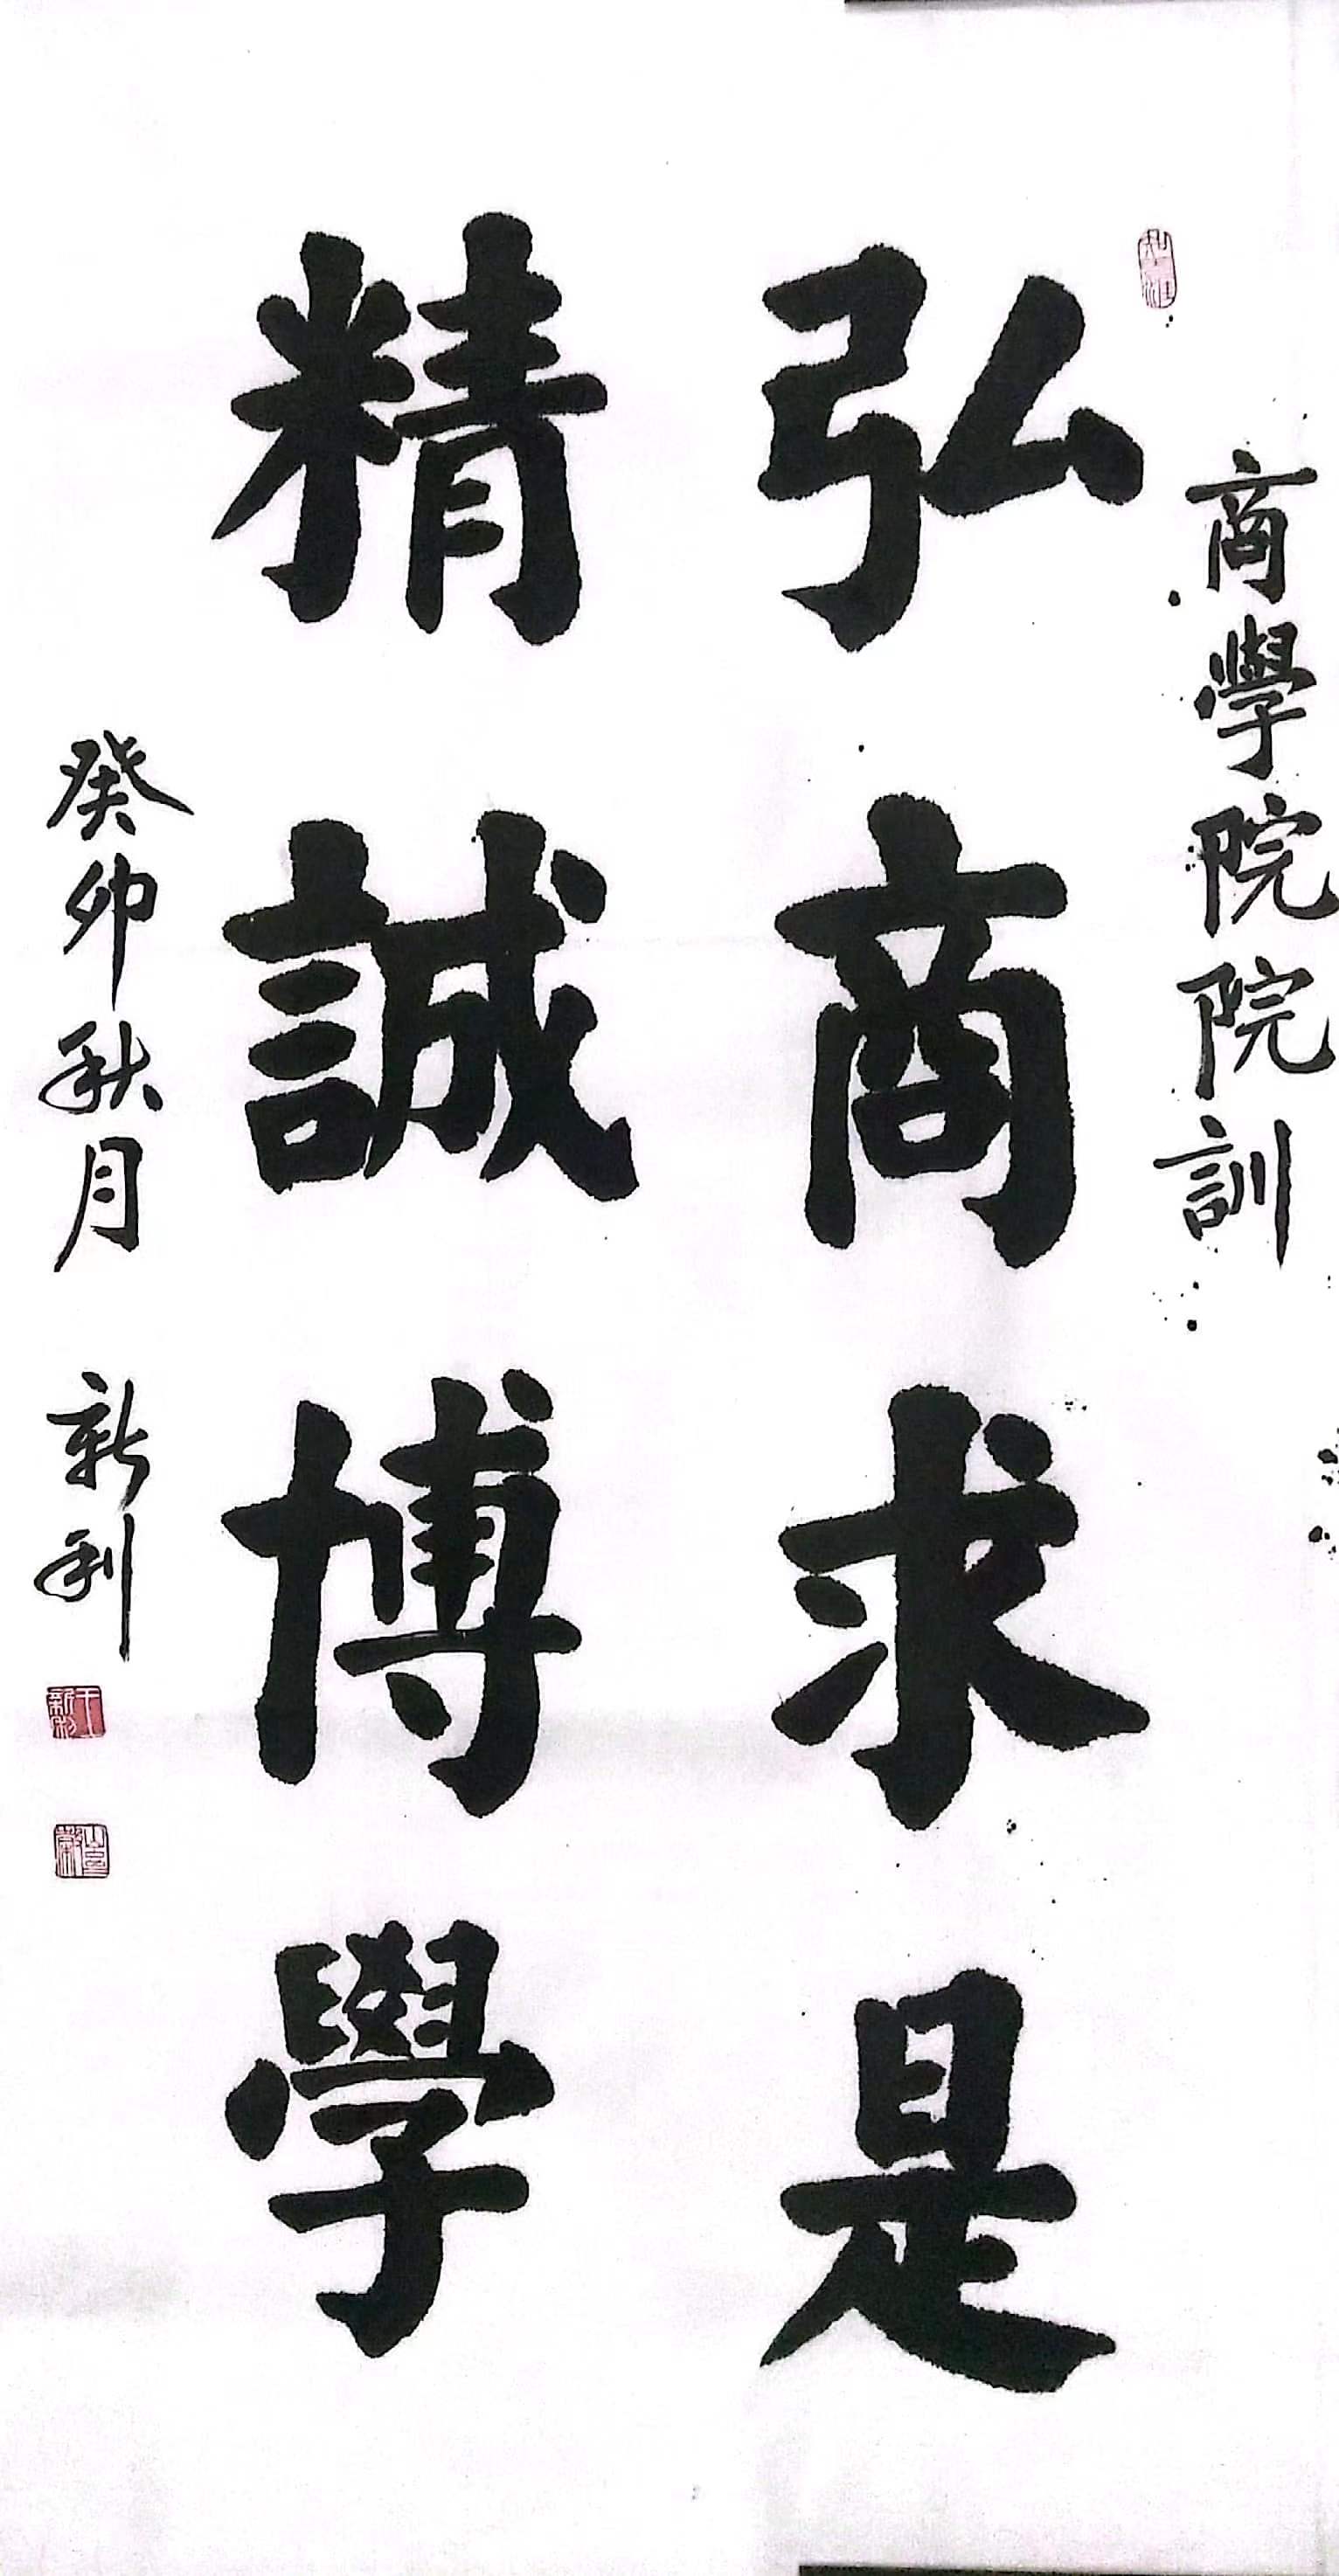 商學院院訓
弘商求是
精誠博學
癸卯秋月 新利
王新利